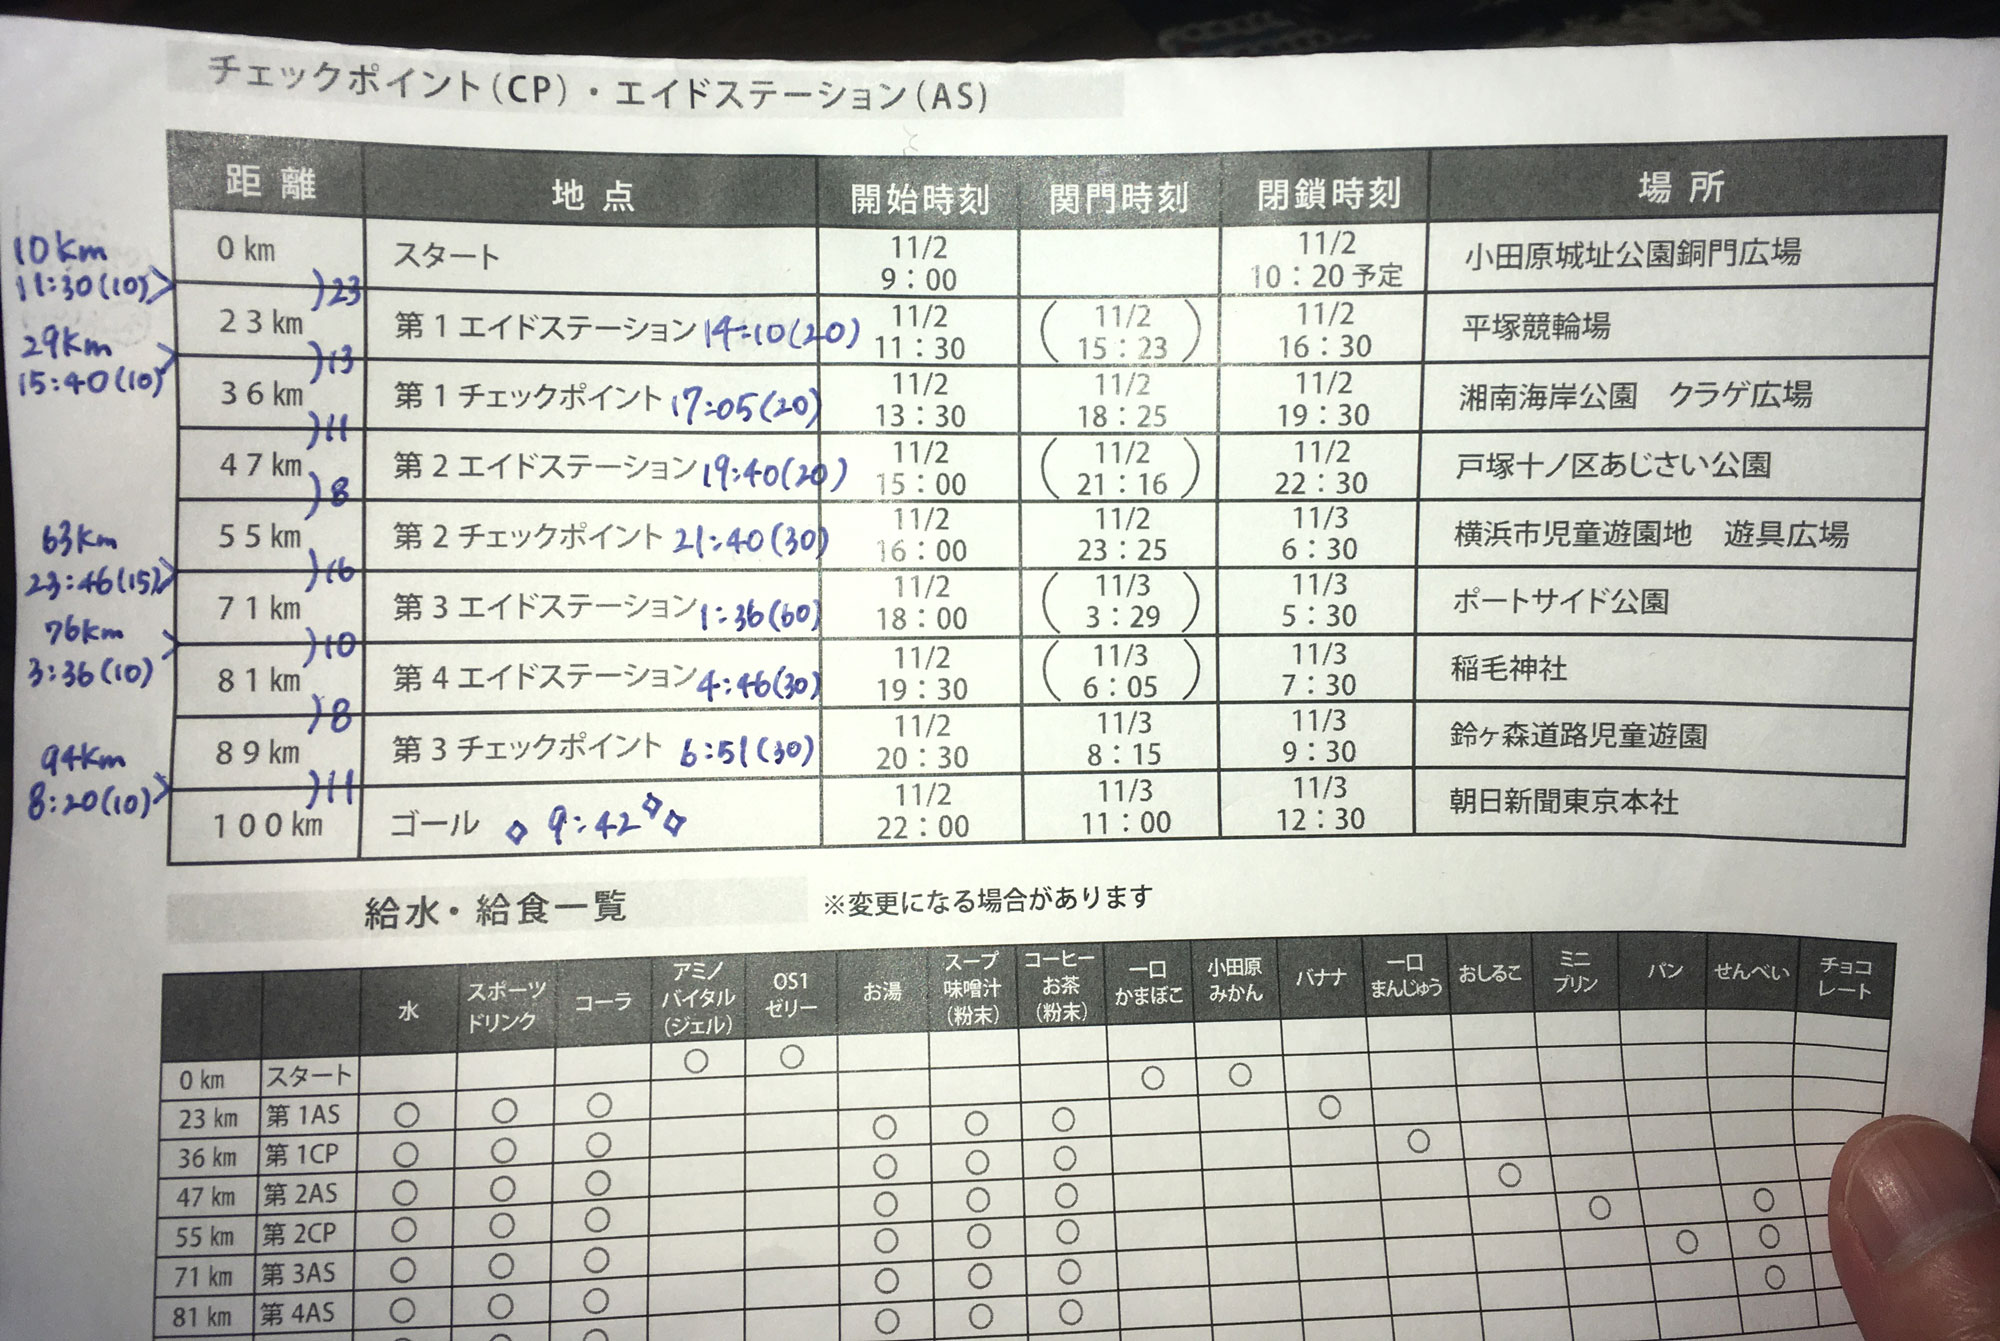 チェックポイント(CP)・エイドステーション(AS)
距離 地点 開始時刻 関門時刻 閉鎖時刻 場所
0 km スタート 11/2 9：00 11/2 10：20 予定 小田原城址公園銅門広場
10km
11:30(10)
)23
23 km 第1エイドステーション 14:10(20) 11/2 11：30 (11/2 15：23) 11/2 16：30 平塚競輪場
29km
15:40(10)
)13
36 km 第1チェックポイント 17:05(20) 11/2 13：30 11/2 18：25 11/2 19：30 湘南海岸公園 クラゲ広場
)11
47 km 第2エイドステーション 19:40(20) 11/2 15：00 (11/2 21：16) 11/2 22：30 戸塚十ノ区あじさい公園
)8
55 km 第2チェックポイント 21:40(30) 11/2 16：00 11/2 23：25 11/3 6：30 横浜市児童遊園地 遊具広場
63km
23:46(15)
)16
71 km 第3エイドステーション 1:36(60) 11/2 18：00 (11/3 3：29) 11/3 5：30 ポートサイド公園
76km
3:36(10)
)10
81 km 第4エイドステーション 4:46(30) 11/2 19：30 (11/3 6：05) 11/3 7：30 稲毛神社
)8
89 km 第3チェックポイント 6:51(30) 11/2 20：30 11/3 8：15 11/3 9：30 鈴ヶ森道路児童遊園
94km
8:20(10)
)11
100km ゴール 9:42 11/2 22：00 11/3 11：00 11/3 12：30 朝日新聞東京本社
給水・給食一覧 ※変更になる場合があります
水 スポーツドリンク コーラ アミノバイタル(ジェル) OS1ゼリー お湯 スープ味噌汁(粉末) コーヒーお茶(粉末) 一口かまぼこ 小田原みかん バナナ 一口まんじゅう おしるこ ミニプリン パン せんべい チョコレート
0 km スタート ○ ○ ○ ○
23 km 第1AS ○ ○ ○ ○ ○ ○ ○
36 km 第1CP ○ ○ ○ ○ ○ ○ ○
47 km 第2AS ○ ○ ○ ○ ○ ○ ○
55 km 第2CP ○ ○ ○ ○ ○ ○ ○ ○
71 km 第3AS ○ ○ ○ ○ ○ ○ ○ ○
81 km 第4AS ○ ○ ○ ○ ○ ○ ○